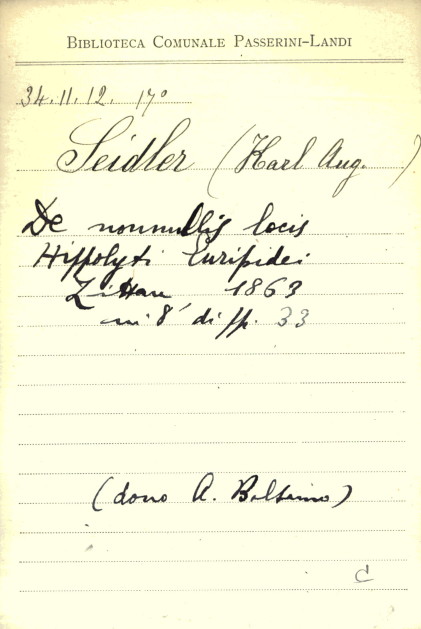 BIBLIOTECA COMUNALE PASSERINI-LANDI
34.11.12. 17°
Seidler (Karl Aug. )
De nonnullis locis
Hippolyti Euripidei
Zittau 1863
in 8° di pp. 33
(dono A. Balsamo)
C